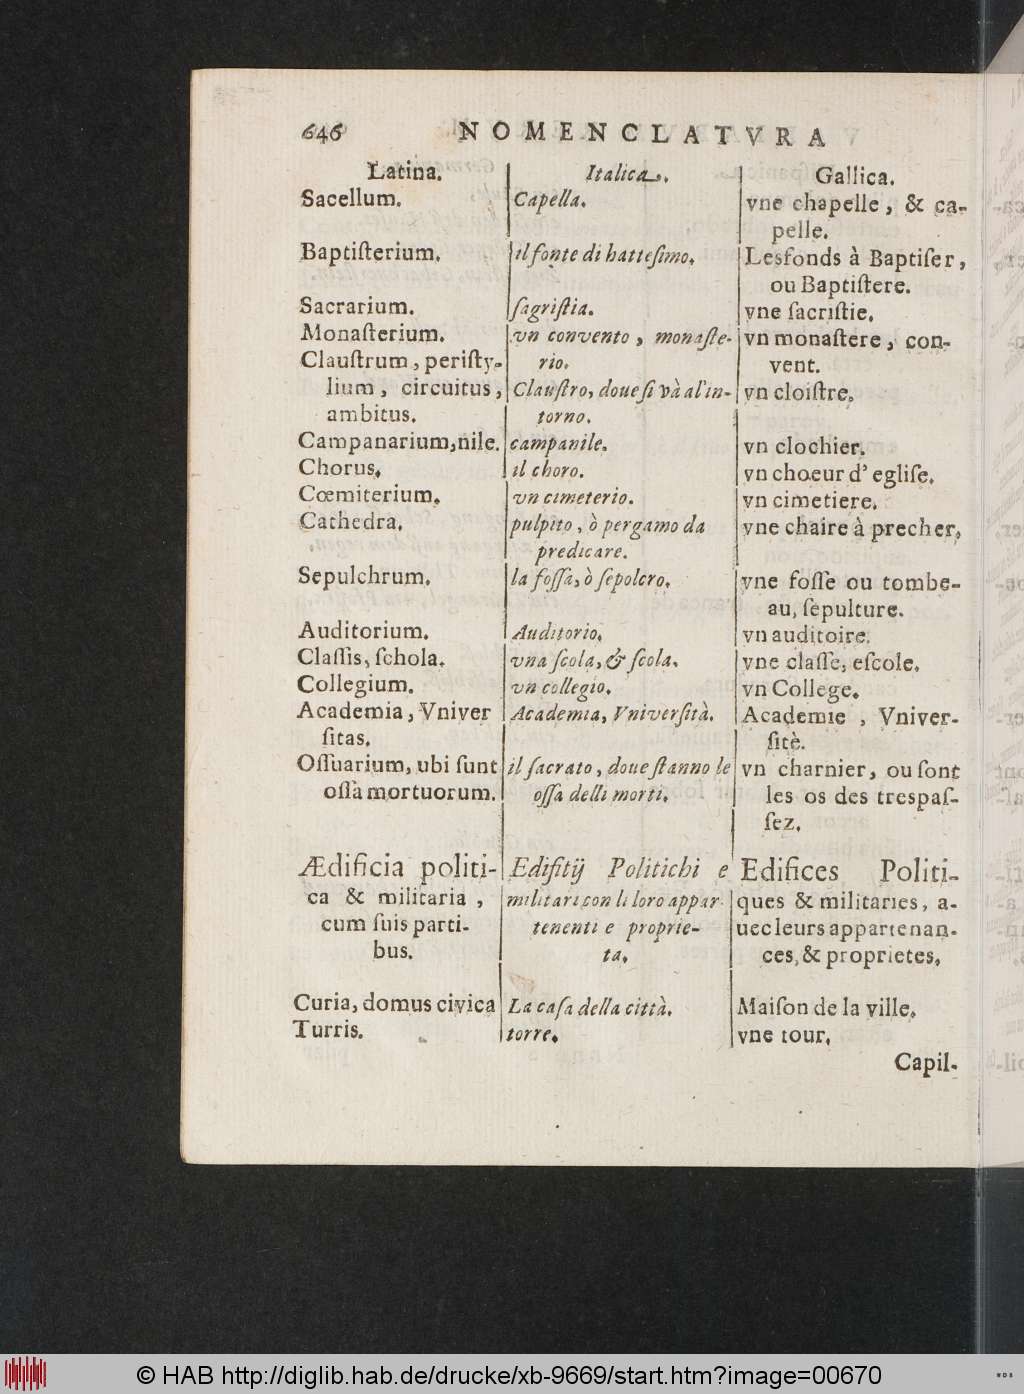 646 NOMENCLATVRA
Latina. Italica. Gallica.
Sacellum. Capella. vne chapelle, & ca-
pelle.
Baptiſterium. il fonte di batteſimo. Lesfonds à Baptiſer,
ou Baptiſtere.
Sacrarium. ſagriſtia. vne ſacriſtie.
Monaſterium. vn convento, monaſte- vn monaſtere, con-
Clauſtrum, periſty- rio. vent.
lium, circuitus, Clauſtro, doue ſi và al'in- vn cloiſtre.
ambitus. torno.
Campanarium,nile. campanile. vn clochier.
Chorus. il choro. vn choeur d' egliſe.
Cœmiterium. vn cimeterio. vn cimetiere.
Cathedra. pulpito, ò pergamo da vne chaire à precher.
predicare.
Sepulchrum. la foſſa, ò ſepolcro. vne foſſe ou tombe-
au, ſepulture.
Auditorium. Auditorio. vn auditoire.
Claſſis, ſchola. vna ſcola, & ſcola. vne claſſe, eſcole.
Collegium. vn collegio. vn College.
Academia, Vniver Academia, Vniverſità. Academie , Vniver-
ſitas. ſitè.
Oſſuarium, ubi ſunt il ſacrato, doue ſtanno le vn charnier, ou ſont
oſſa mortuorum. oſſa delli morti. les os des treſpaſ-
ſez.
Ædificia politi- Edifitij Politichi e Edifices Politi-
ca & militaria , militari con li loro appar ques & militaries, a-
cum ſuis parti- tenenti e proprie- uec leurs appartenan-
bus. ta. ces, & proprietes.
Curia, domus civica La caſa della città. Maiſon de la ville.
Turris. torre. vne tour.
Capil-
© HAB http://diglib.hab.de/drucke/xb-9669/start.htm?image=00670